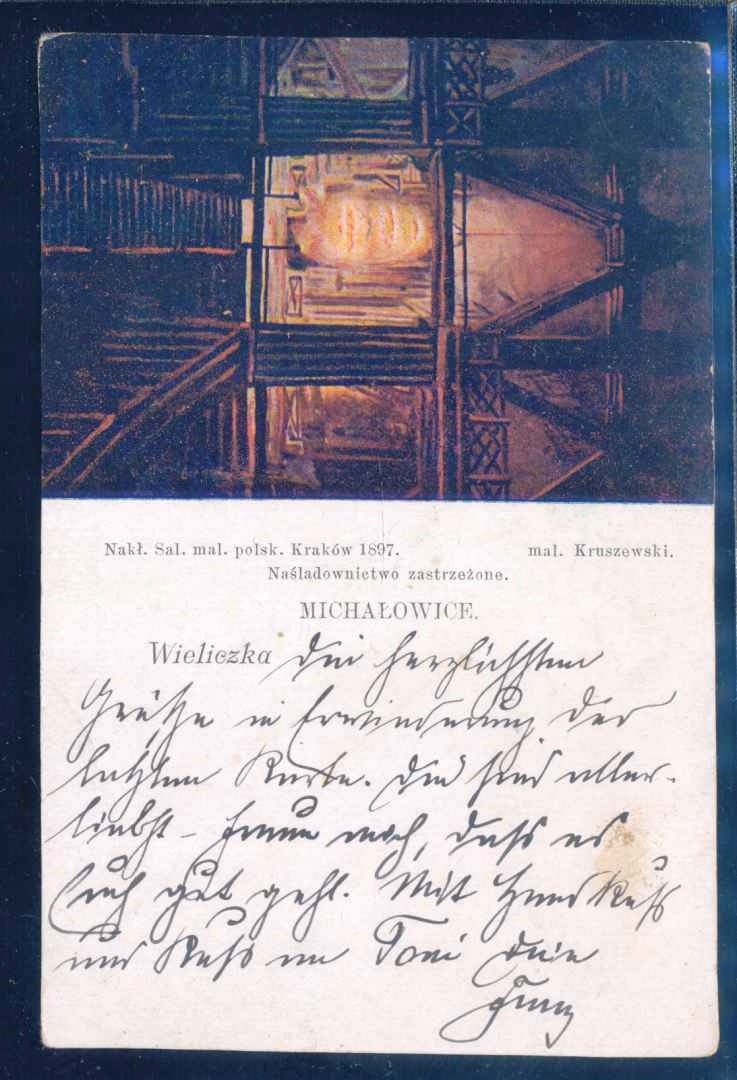 Nakł. Sal. mal. polsk. Kraków 1897. mal. Kruszewski.
Naśladownictwo zastrzeżone.
MICHAŁOWICE.
Wieliczka Die herzlichsten
Grüße in Erwiderung der
letzten Karte. Die sind aller-
liebst – freue mich, dass es
Euch gut geht. Mit Handkuß
und Kuß an Toni Dein